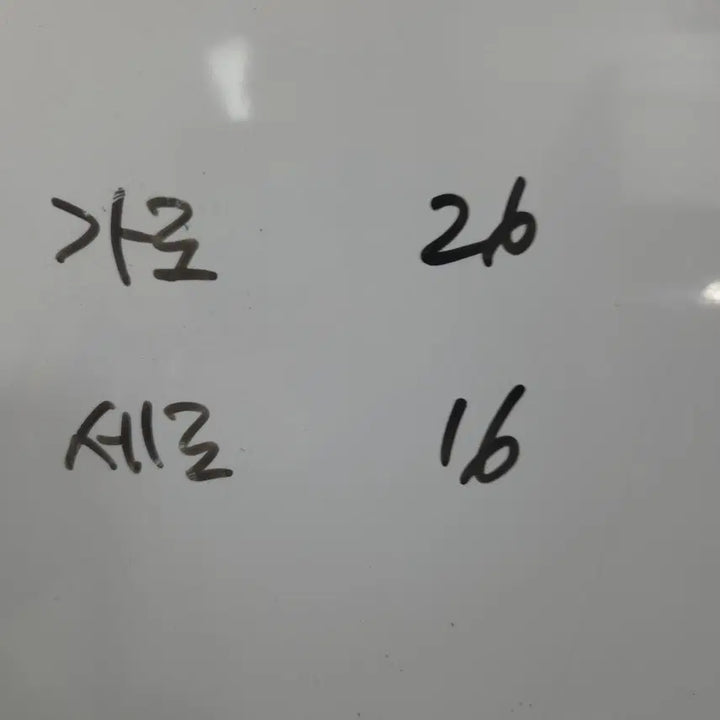 가로 26
세로 16